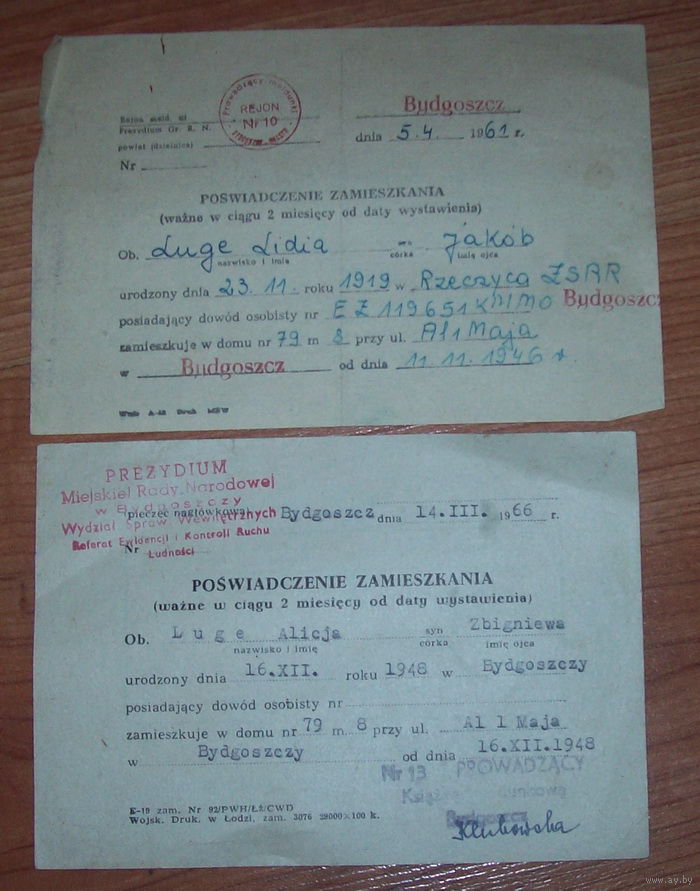 Prowadzący meldunki
REJON
Nr 10
Bydgoszcz
Rejon meld. nr
Prezydium Gr. R. N.
powiat (dzielnica)
dnia 5.4. 1961 r.
Nr
POŚWIADCZENIE ZAMIESZKANIA
(ważne w ciągu 2 miesięcy od daty wystawienia)
Ob. Luge Lidia syn córka Jakób
nazwisko i imię imię ojca
urodzony dnia 23.11. roku 1919 w Rzeczyca ZSRR
posiadający dowód osobisty nr EZ 1119651 KMMO Bydgoszcz
zamieszkuje w domu nr 79 m 8 przy ul. Al 1 Maja
w Bydgoszcz od dnia 11.11.1946 r.
PREZYDIUM
Miejskiej Rady Narodowej
w Bydgoszczy
(pieczęć nagłówkowa) Bydgoszcz dnia 14.III. 1966 r.
Wydział Spraw Wewnętrznych
Referat Ewidencji i Kontroli Ruchu
Nr Ludności
POŚWIADCZENIE ZAMIESZKANIA
(ważne w ciągu 2 miesięcy od daty wystawienia)
Ob. Luge Alicja syn córka Zbigniewa
nazwisko i imię imię ojca
urodzony dnia 16.XII. roku 1948 w Bydgoszczy
posiadający dowód osobisty nr
zamieszkuje w domu nr 79 m. 8 przy ul. Al 1 Maja
w Bydgoszczy od dnia 16.XII.1948
Nr 13 PROWADZĄCY
Książkę Meldunkową
Bydgoszcz
E-19 zam. Nr 92/PWH/ŁŻ/CWD
Wojsk. Druk. w Łodzi, zam. 3076 29000×100 k.
www.ay.by